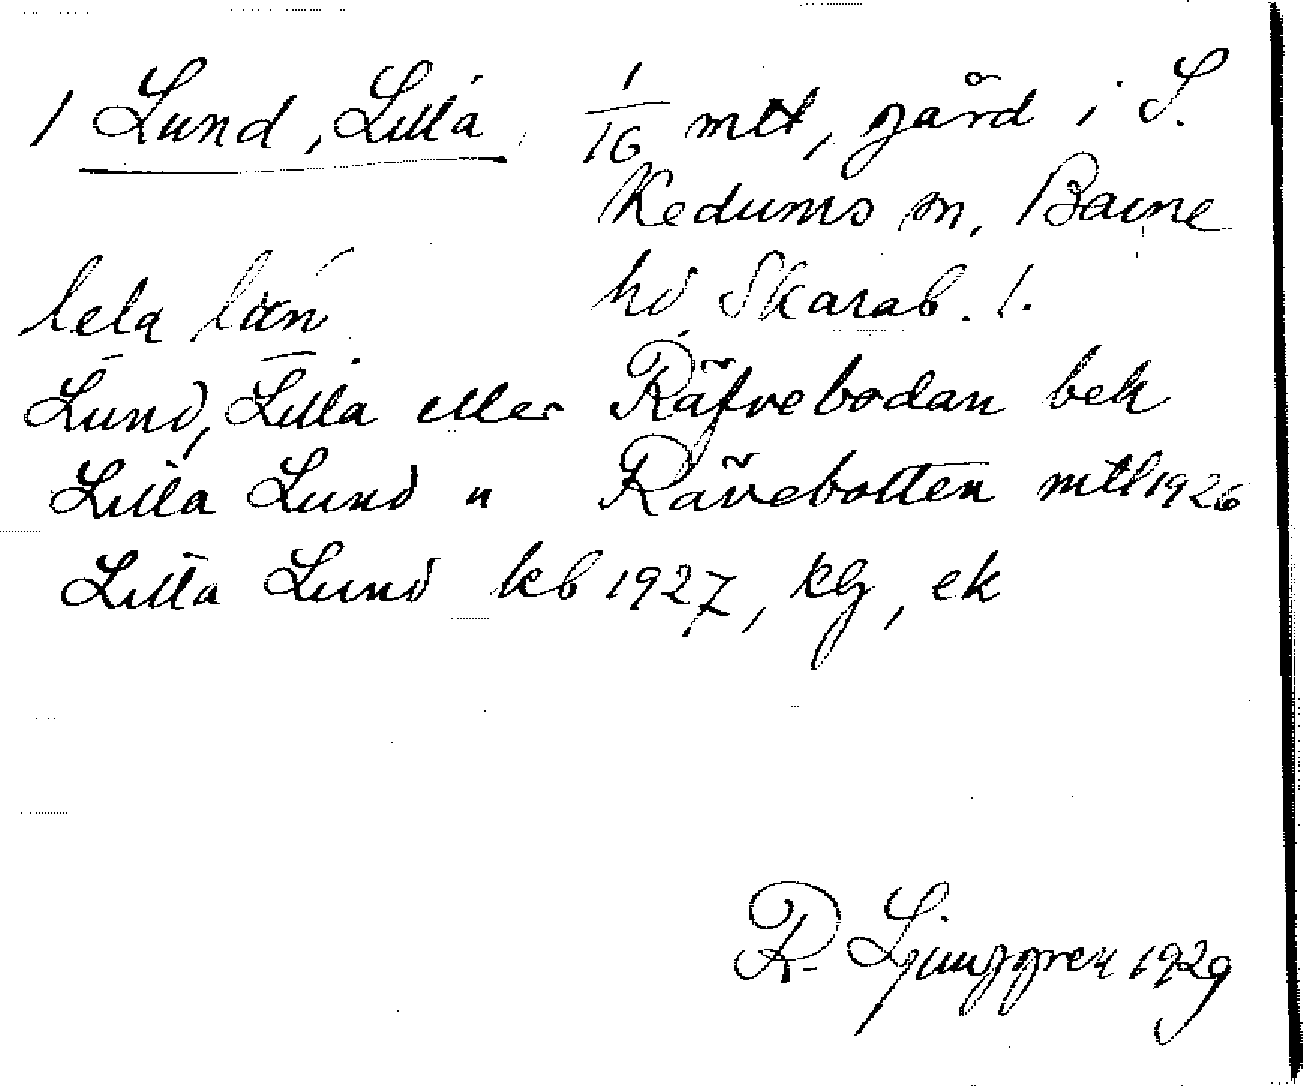 1 Lund, Lilla 1/16 mtl, gård i S.
Kedums sn, Barne
hd Skarab. l.
lela lɷn
Lund, Lilla eller Räfvebodan bek
Lilla Lund " Rävebotten mtl 1926
Lilla Lund kb 1927, klg, ek
R Ljunggren 1929